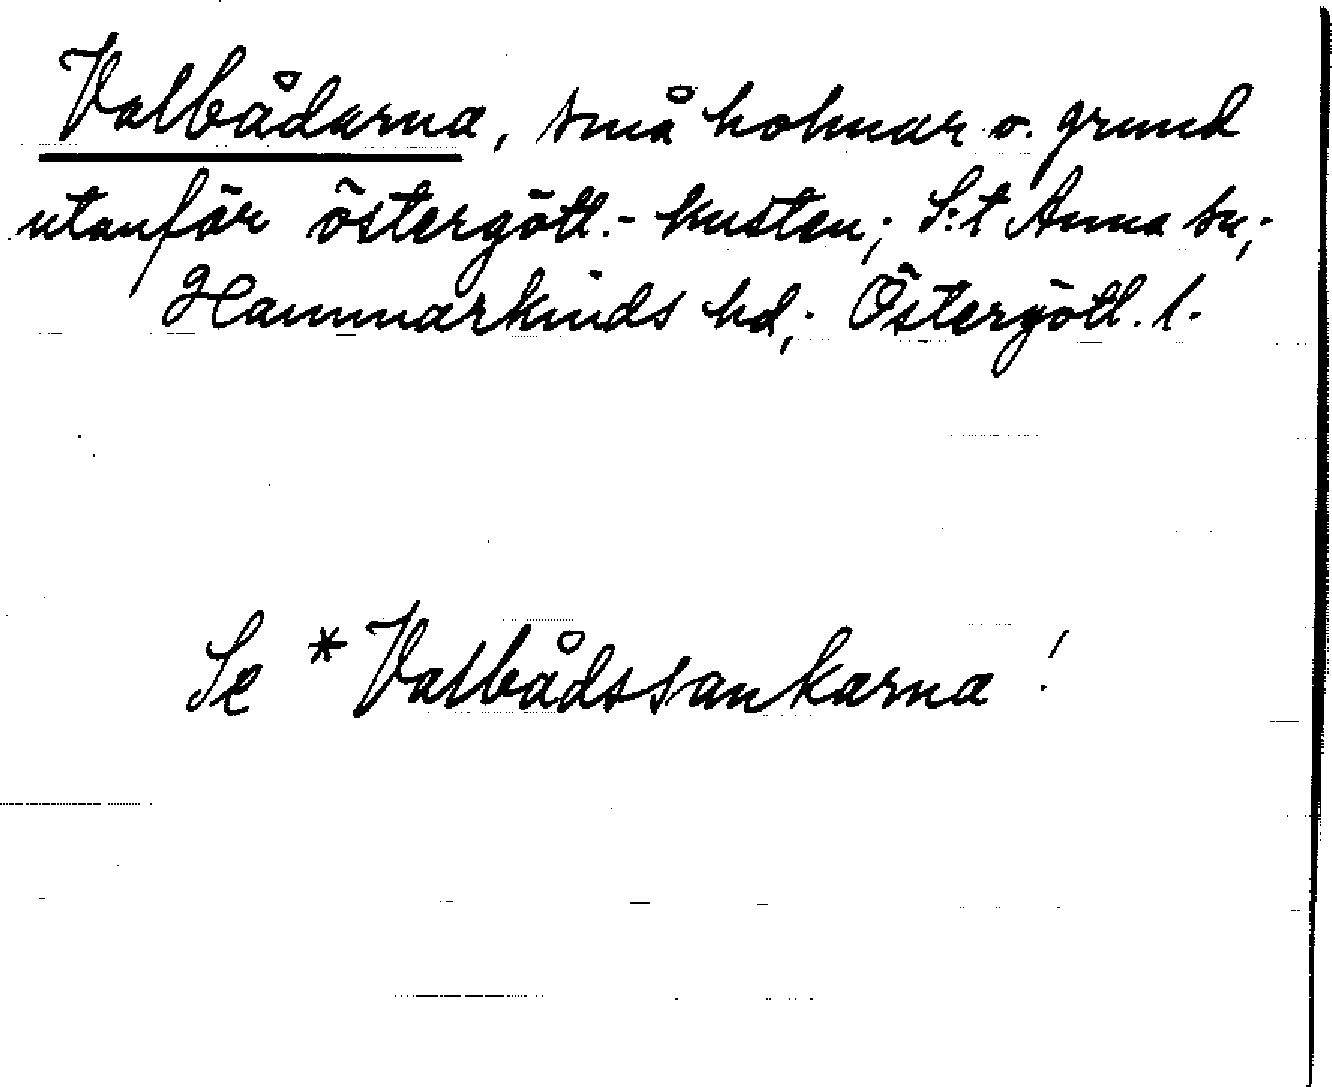 Valbådarna, små holmar o. grund
utanför östergötl.- kusten; S:t Anna sn,;
Hammarkinds hd,; Östergötl. l.
Se *Valbådssankarna!